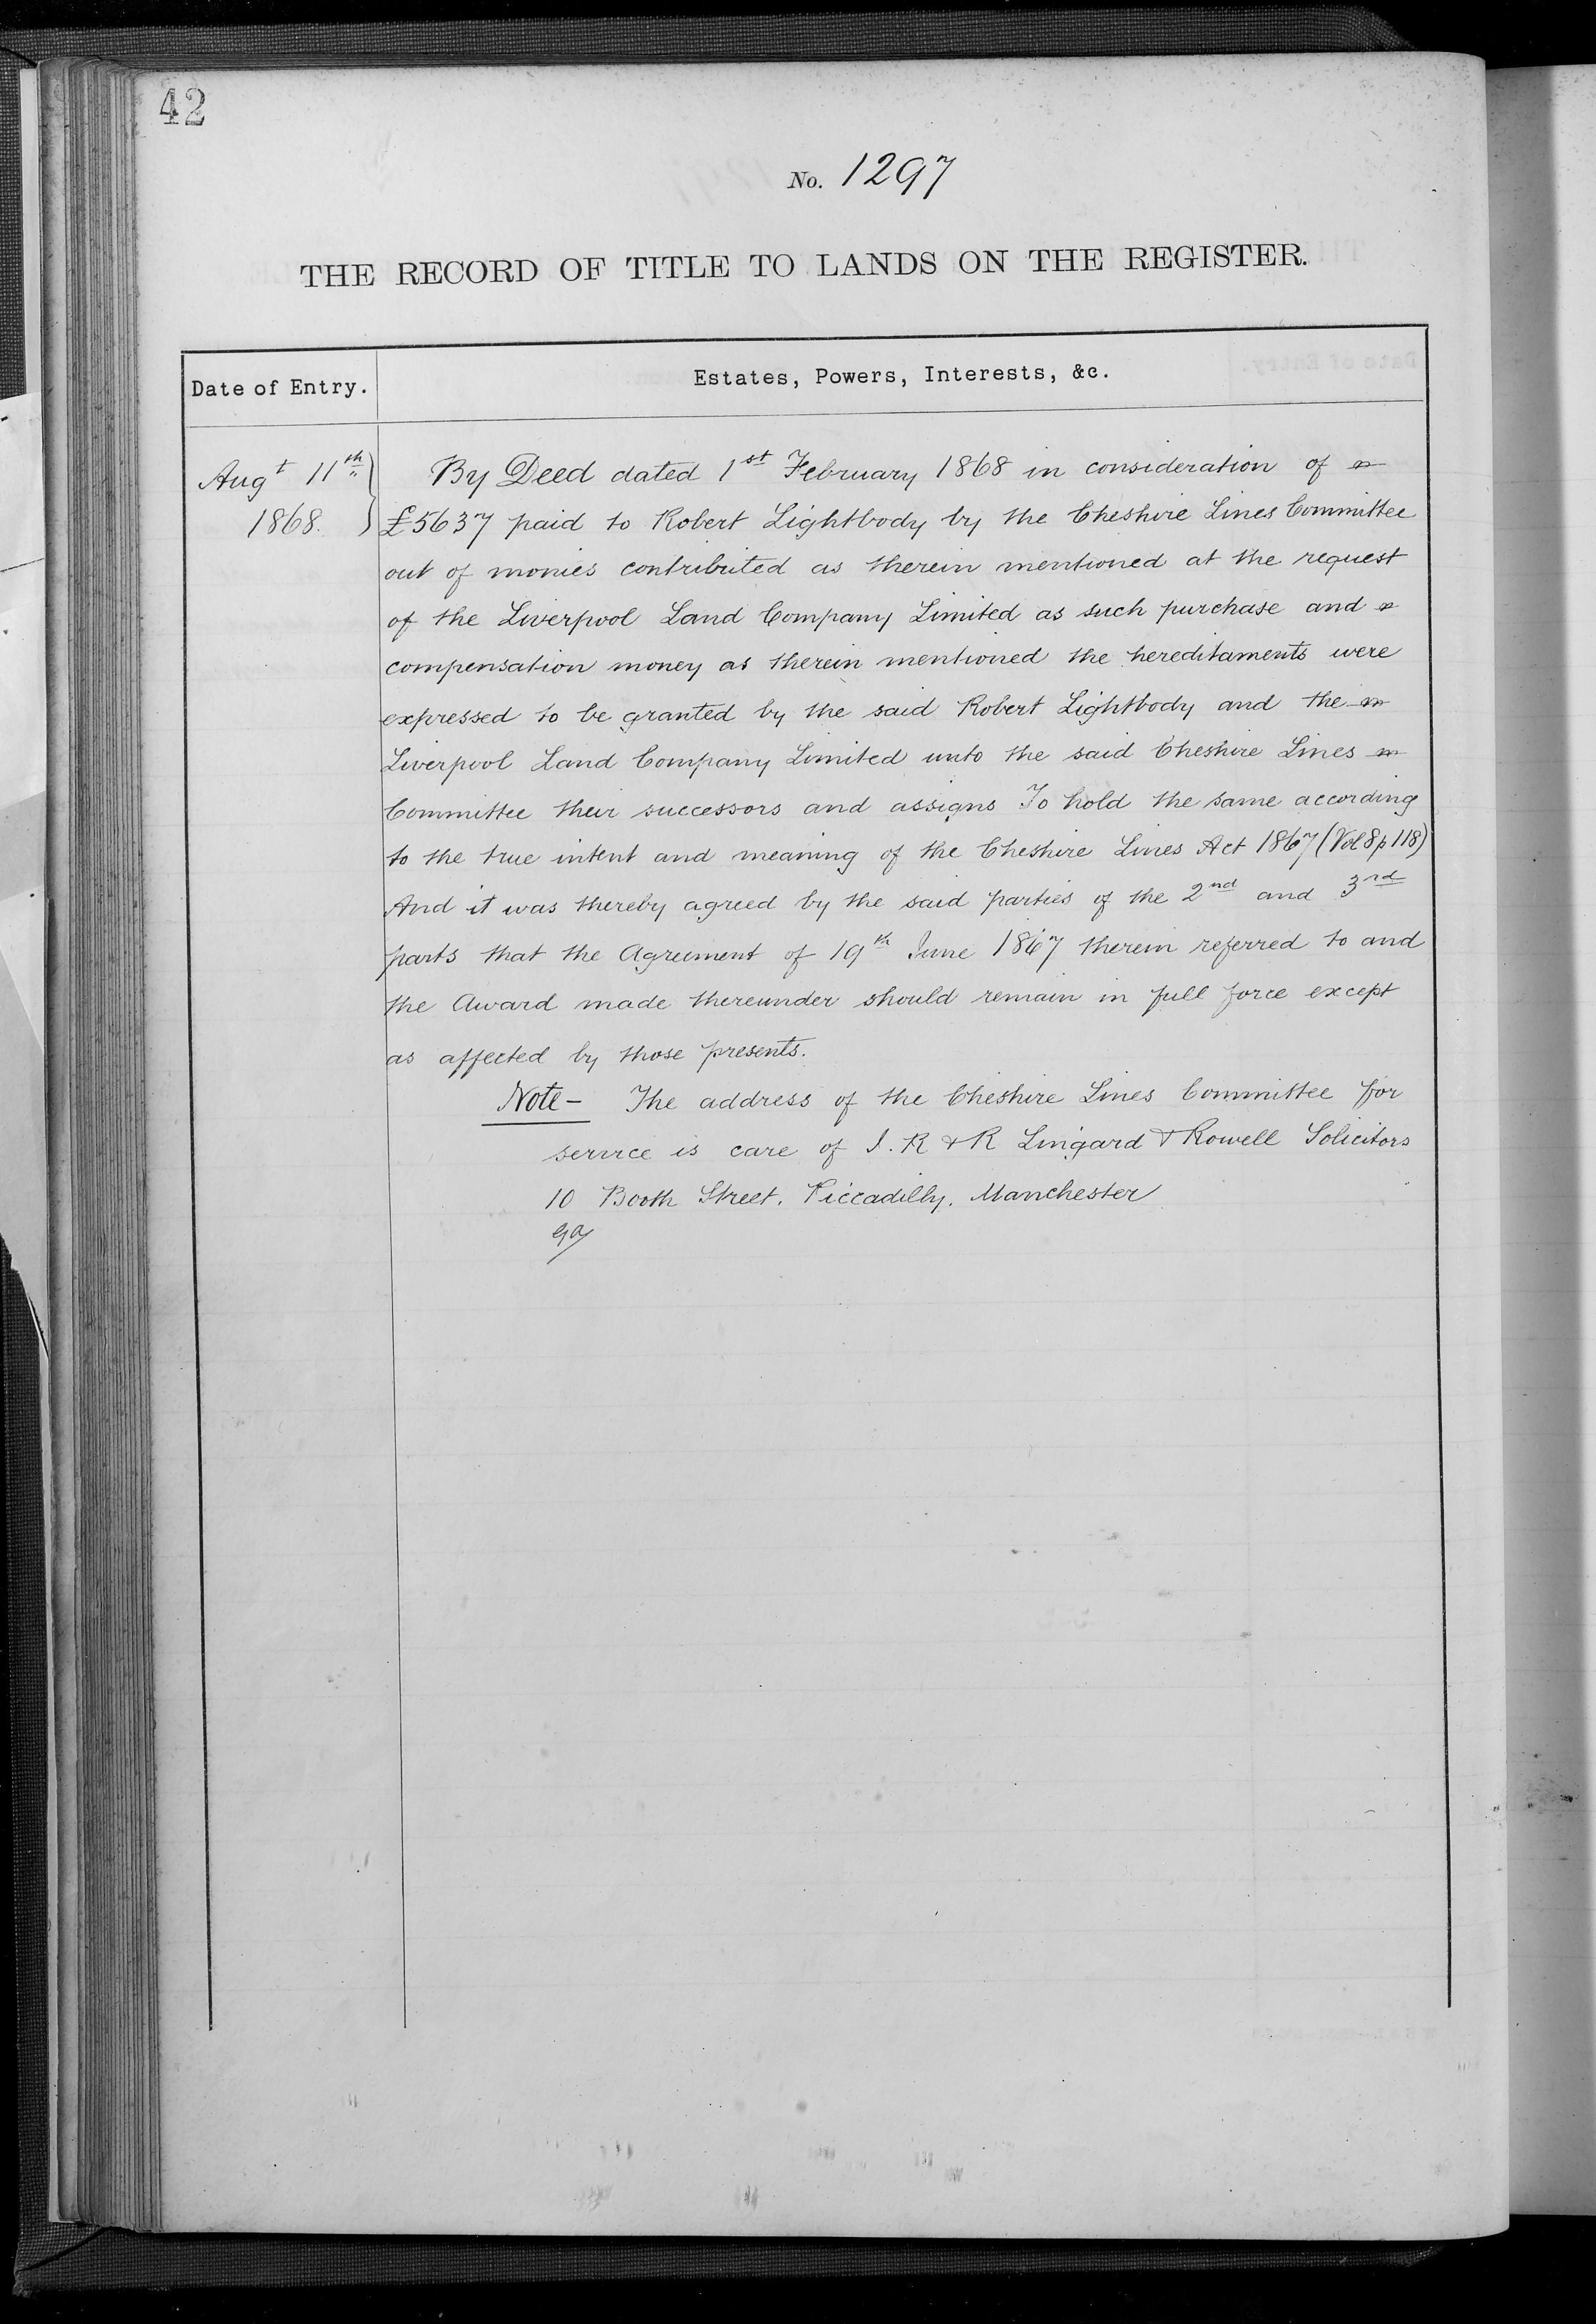 42
No. 1297
THE RECORD OF TITLE TO LANDS ON THE REGISTER.
Date of Entry.
Estates, Powers, Interests, &c.
Augt 11th
1868.
By Deed dated 1st February 1868 in consideration of
£5637 paid to Robert Lightbody by the Cheshire Lines Committee
out of monies contributed as therein mentioned at the request
of the Liverpool Land Company Limited as such purchase and
compensation money as therein mentioned the hereditaments were
expressed to be granted by the said Robert Lightbody and the
Liverpool Land Company Limited unto the said Cheshire Lines
Committee their successors and assigns To hold the same according
to the true intent and meaning of the Cheshire Lines Act 1867 (Vol 8 p 118)
And it was thereby agreed by the said parties of the 2nd and 3rd
parts that the Agreement of 19th June 1867 therein referred to and
the Award made thereunder should remain in full force except
as affected by those presents.
Note - The address of the Cheshire Lines Committee for
service is care of J. R & R Lingard & Rowell Solicitors
10 Booth Street, Piccadilly, Manchester